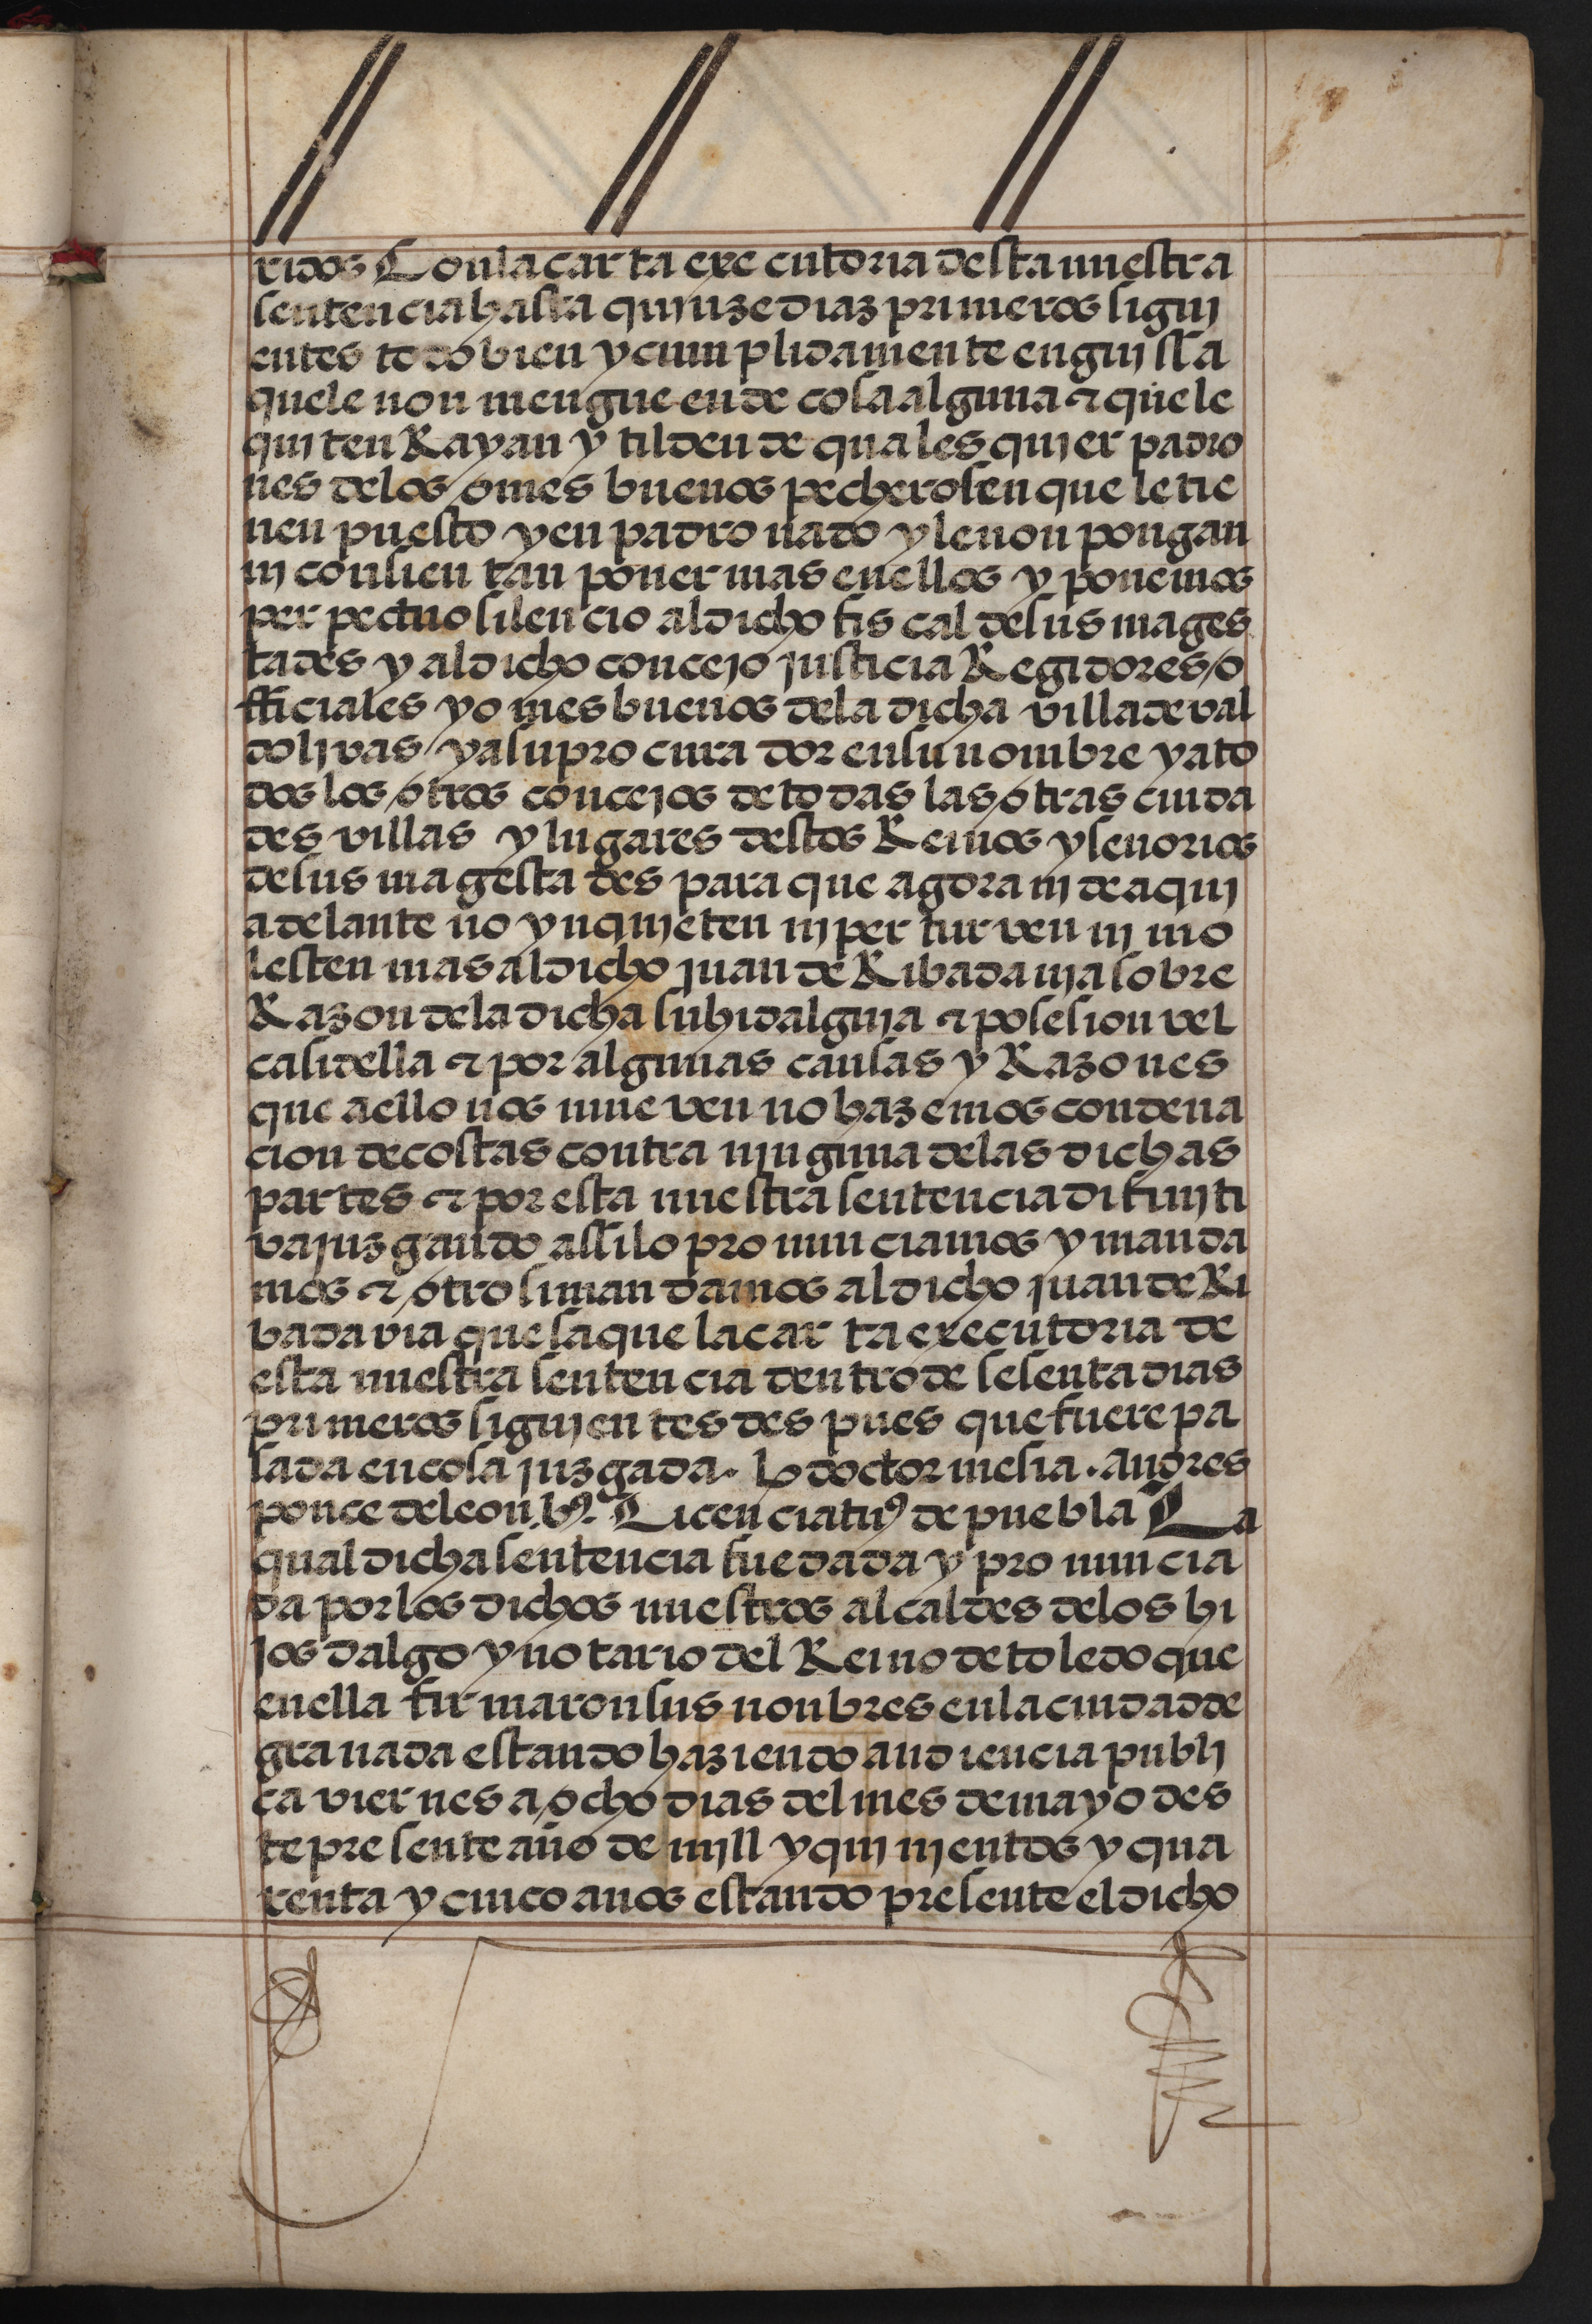 ridos Con la carta executoria desta nuestra
sentencia hasta quinze diaz primeros sigui
entes todo bien y cunplidamente en guissa
que le non mengue ende cosa alguna & que le
quiten Rayan y tilden de quales quier padro
nes de los omes buenos pecheros en que le tie
nen puesto y enpadronado y le non pongan
ni consientan poner mas en ellos y ponemos
perpectuo silencio al dicho fiscal de sus mages
tades y al dicho concejo justicia Regidores / o
fficiales y omes buenos de la dicha villa de val
dolivas / y a su procurador en su nombre y a to
dos los / otros concejos de todas las / otras ciuda
des villas y lugares destos Reinos y senorios
de sus magestades para que agora ni de aqui
adelante no ynquieten ni perturven ni mo
lesten mas al dicho juan de Ribadavia sobre
Razon de la dicha su hidalguia & posesion vel
casi della & por algunas causas y Razones
que a ello nos mueven no hazemos condena
cion de costas contra ninguna de las dichas
partes & por esta nuestra sentencia difiniti
va juzgando assi lo pronunciamos y manda
mos & / otrosi mandamos al dicho juan de Ri
badavia que saque la carta executoria de
esta nuestra sentencia dentro de sesenta dias
primeros siguientes des pues que fuere pa
sada en cosa juzgada. L doctor mesia. Andres
ponce de leon b9. Licenciatus de puebla La
qual dicha sentencia fue dada y pronuncia
da por los dichos nuestros alcaldes de los hi
jos dalgo y notario del Reino de toledo que
en ella firmaron sus nonbres en la ciudad de
granada estando haziendo audiencia publi
ca viernes a / ocho dias del mes de mayo des
te presente año de mill y quinientos y qua
renta y cinco anos estando presente el dicho